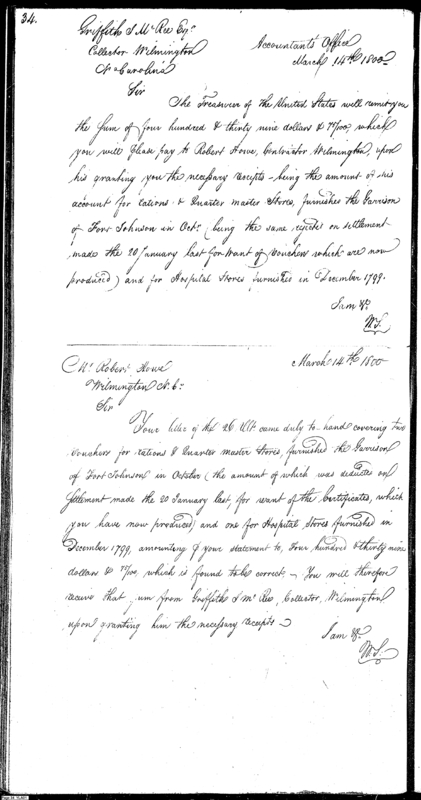 34.
Griffith J McRee Esqr
Collector Wilmington
No Carolina
Accountant's Office
March 14th 1800
Sir
The Treasurer of the United States will remit you
the sum of four hundred & thirty nine dollars & /100, which
you will please pay to Robert Howe, Contractor Wilmington, upon
his granting you the necessary receipts - being the amount of his
account for rations & Quarter master Stores, furnished the Garrison
of Fort Johnson in Octr (being the same rejected on settlement
made the 20 January last for want of Vouchers which are now
produced) and for Hospital Stores furnished in December 1799.
I am &c
W.S.
Mr Robert Howe
Wilmington N. Ca
March 14th 1800
Sir
Your letter of the 26 Ult came duly to hand covering two
Vouchers for rations & Quarter master Stores, furnished the Garrison
of Fort Johnson in October (the amount of which was deducted on
Settlement made the 20 January last, for want of the Certificates, which
you have now produced) and one for Hospital Stores furnished in
December 1799, amounting your statement to, Four hundred & thirty nine
dollars & /100, which is found to be correct, - You will therefore
receive that sum from Griffith J McRee, Collector, Wilmington
upon granting him the necessary receipts -
I am &c.
W.S.